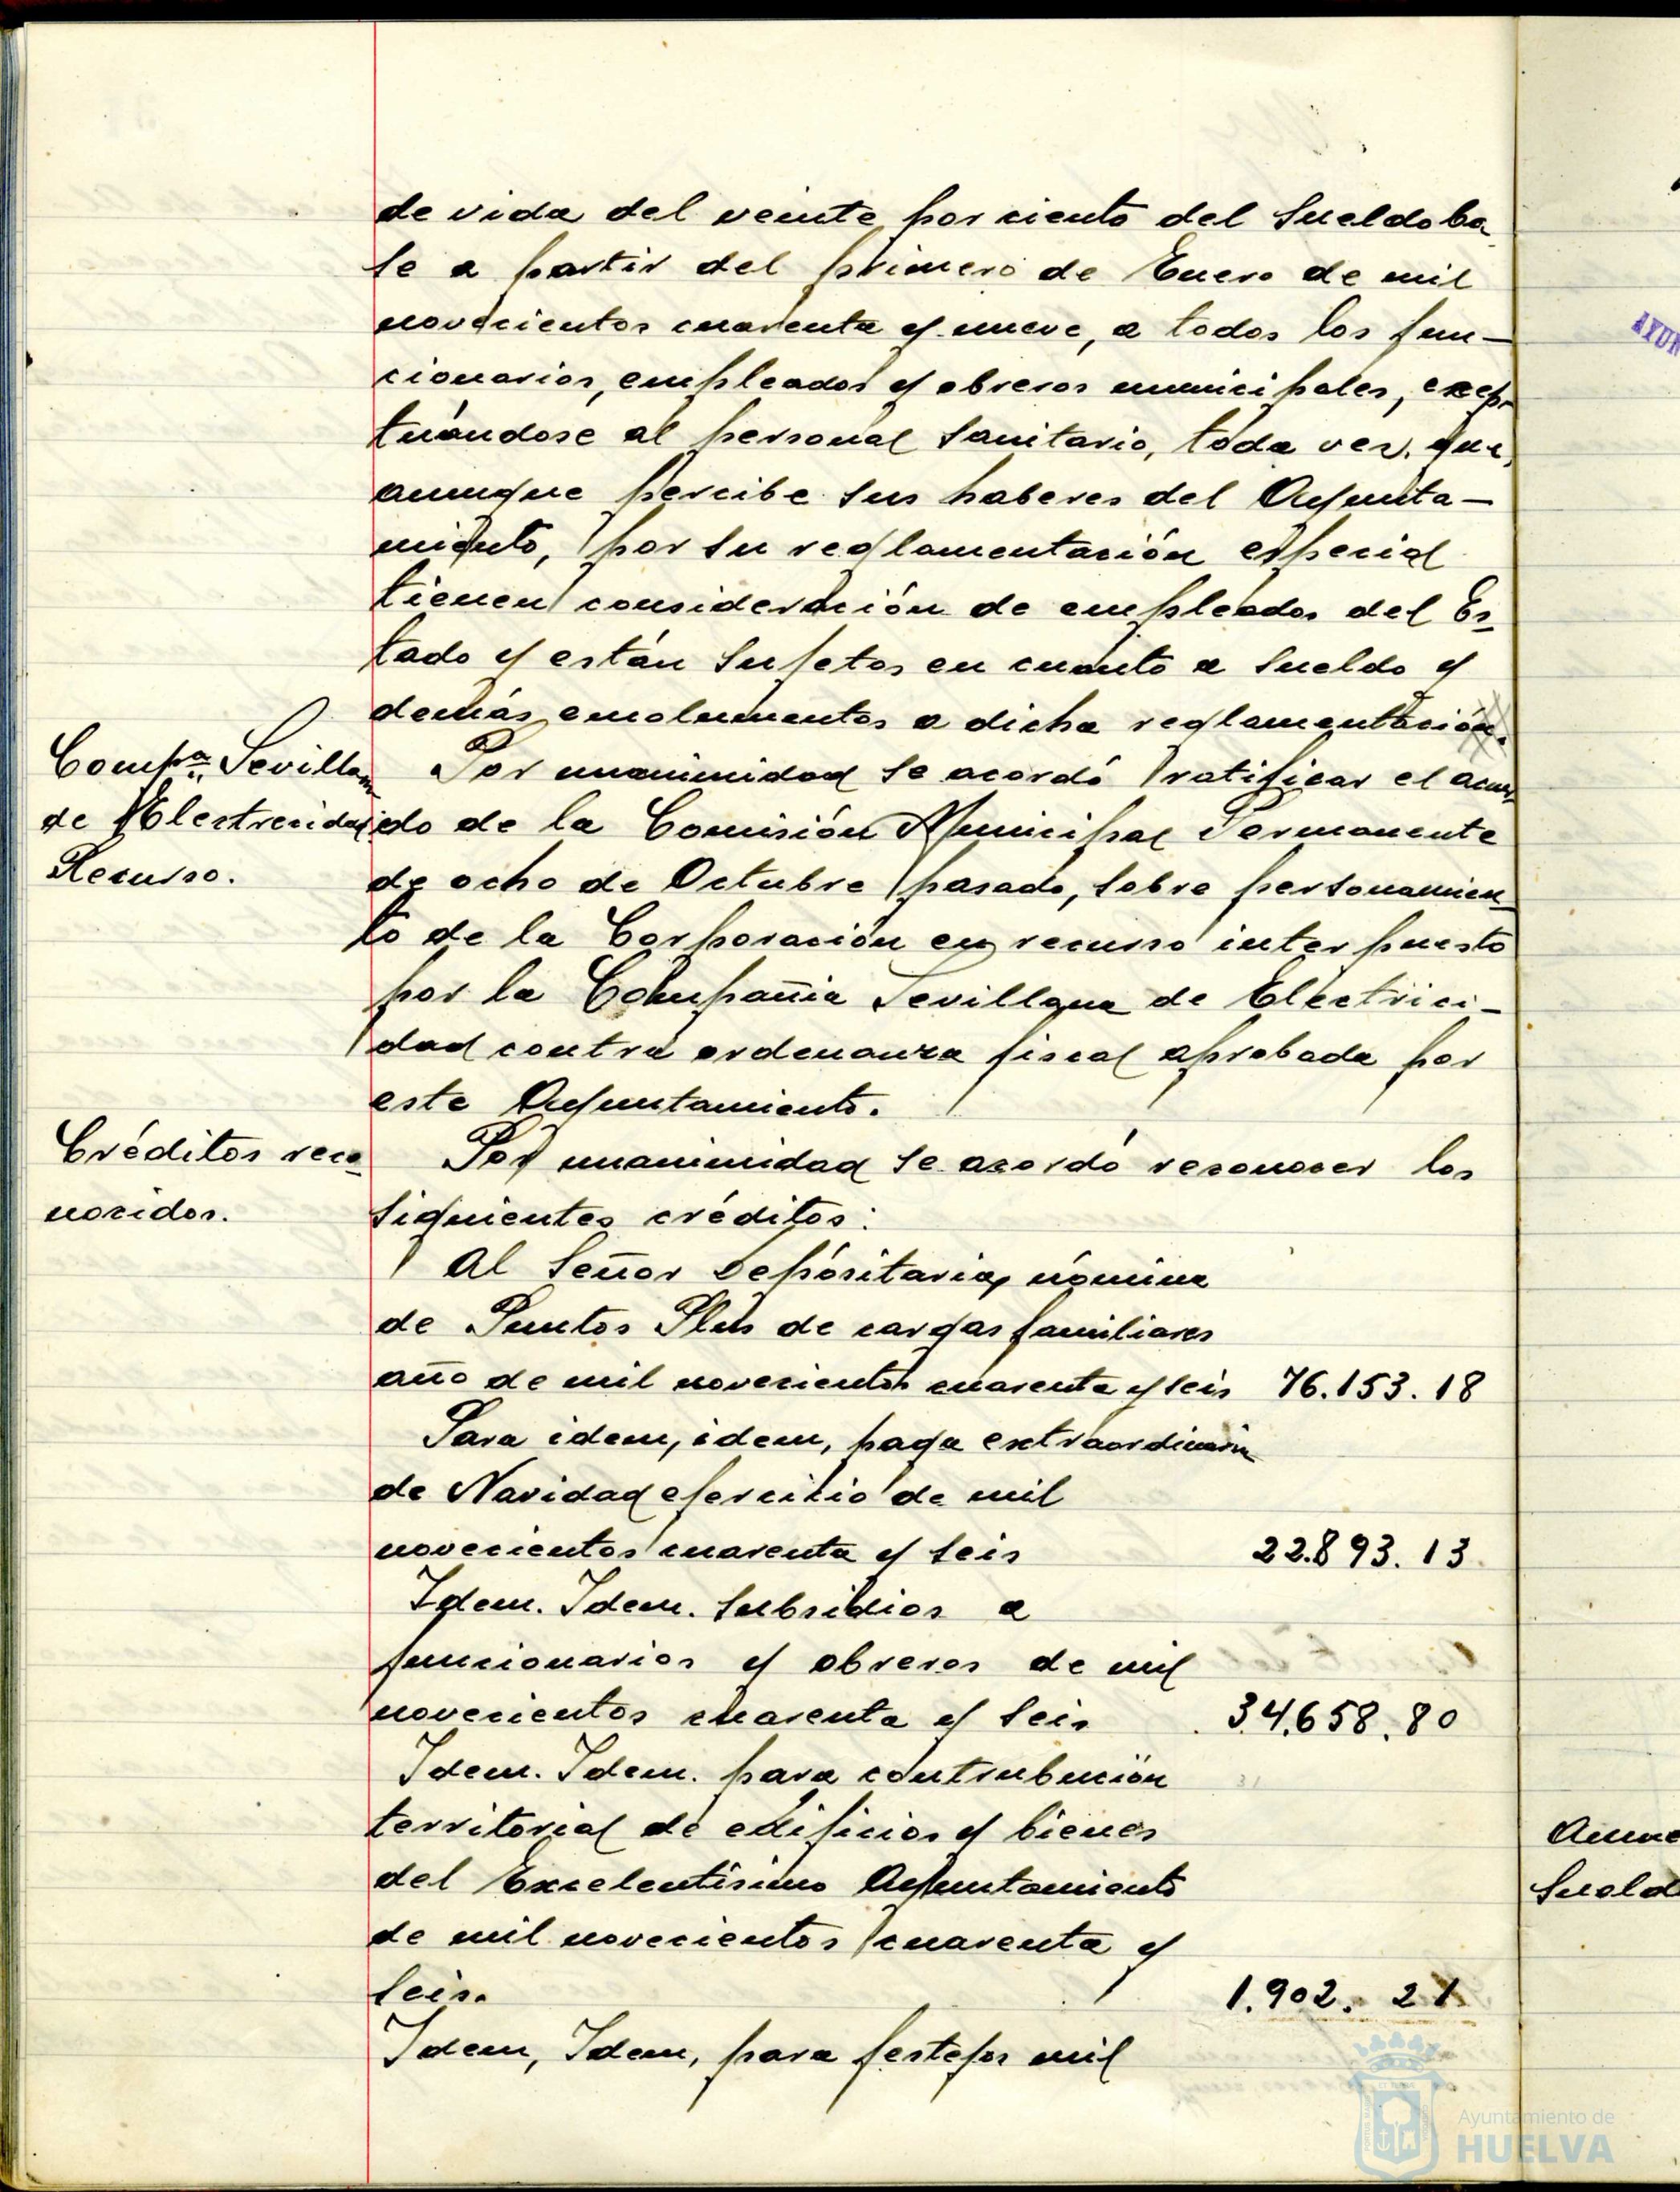 de vida del veinte por ciento del sueldo ba-
se a partir del primero de Enero de mil
novecientos cuarenta y nueve, a todos los fun-
cionarios, empleados y obreros municipales, excep-
tuándose al personal sanitario, toda vez que,
aunque percibe sus haberes del Ayunta-
miento, por su reglamentación especial
tienen consideración de empleados del Es-
tado y están sujetos en cuanto a sueldo y
demás emolumentos a dicha reglamentación.
Compª Sevillana
de Electrecidad
Recurso.
Por unanimidad se acordó ratificar el acuer-
do de la Comisión Municipal Permanente
de ocho de Octubre pasado, sobre personamien-
to de la Corporación en recurso interpuesto
por la Compañia Sevillana de Electrici-
dad contra ordenanza fiscal aprobada por
este Ayuntamiento.
Créditos reco-
nocidos.
Por unanimidad se acordó reconocer los
siguientes créditos:
Al Señor Depósitario, nómina
de Puntos Plus de cargas familiares
año de mil novecientos cuarenta y seis 76.153.18
Para idem, idem, paga extraordinaria
de Navidad ejercicio de mil
novecientos cuarenta y seis 22.893.13
Idem. Idem. Subsidios a
funcionarios y obreros de mil
novecientos cuarenta y seis 34.658.80
Idem. Idem. para contrubución
territorial de edificios y bienes
del Excelentísimo Ayuntamiento
de mil novecientos cuarenta y
seis. 1.902. 21
Idem, Idem, para festejos mil
Sueld
Ayuntamiento de
HUELVA